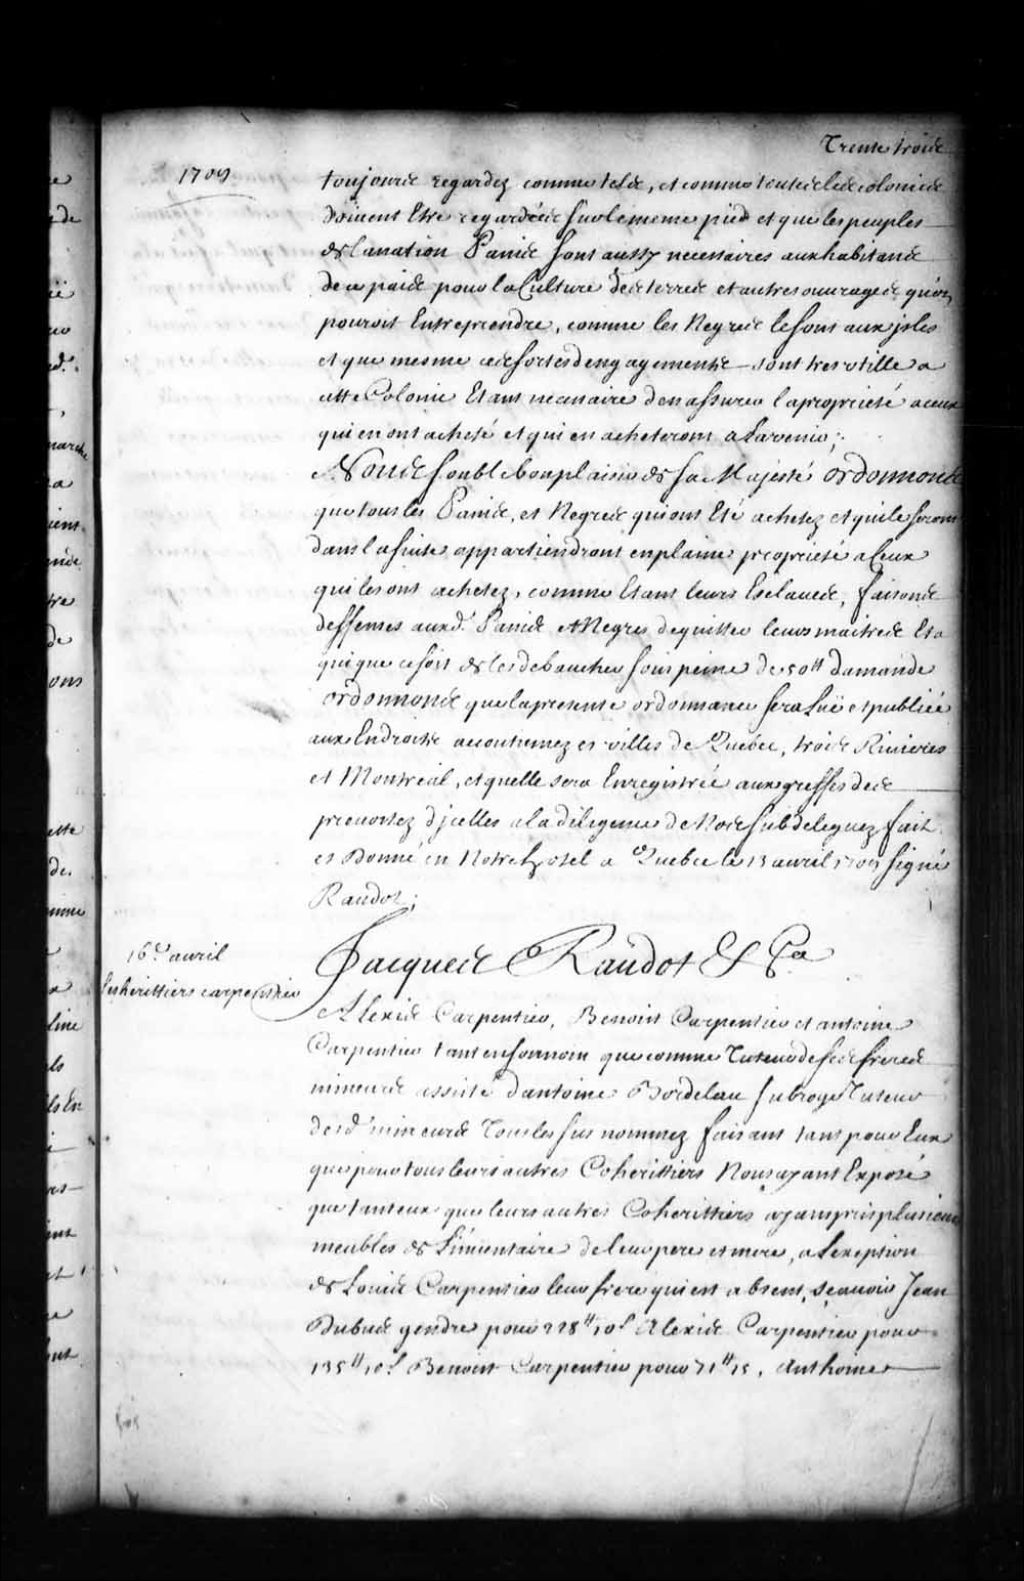 Trente trois
1709
toujours regardez comme tels, et comme toutes les colonies
doivent Etre regardées sur le meme pied et que les peuples
de la nation Panis sont aussy necessaires aux habitans
de ce païs pour la Culture des terres et autres ouvrages qu'on
pouroit Entreprendre, comme les Negres le sont aux isles
et que mesme ces sortes dengagements sont tres utille a
cette Colonie Etant necessaire den assurer la proprieté a ceux
qui en ont acheté et qui en acheteront a Lavenir;
Nous sous le bon plaisir de sa Majesté ordonnons
que tous les Panis, et Negres qui ont Eté achetez et qui le seront
dans la suite appartiendront en plaine proprieté a Ceux
qui les ont achetez, comme Etant leurs Esclaves, faisons
deffenses auxd. Panis et Negres de quitter leurs maitres Et a
qui que ce soit de les debaucher sous peine de 50 ₶ damande
ordonnons que la presente ordonnance sera Luë et publiée
aux Endroits accoutumez es villes de Quebec, trois Rivieres
et Montreal, et quelle sera Enregistrée aux greffes des
prevostez d'jcelles a la diligence de Nos subdeleguez fait
et Donné en Notre hotel a Quebec le 13 avril 1709 signé
Raudot;
16.e avril
les herittiers carpentier
Jacques Raudot &.Ca
Alexis Carpentier, Benoist Carpentier et antoine
Carpentier tant en son nom que comme Tuteur de ses freres
mineurs assisté d'antoine Bordelau subrogé Tuteur
desd. mineurs Tous les sus nommez faisant tant pour Eux
que pour tous leurs autres Coherittiers Nous ayant Exposé
que tant eux que leurs autres Coherittiers ayant pris plusieurs
meubles de L'inventaire de leur pere et mere, a Lexeption
de Louis Carpentier leur frere qui est absent, sçavoir Jean
Dubuc gendre pour 228 ₶ 10 s Alexis Carpentier pour
135 ₶ 10 s Benoist Carpentier pour 71 ₶ 15, Anthoine